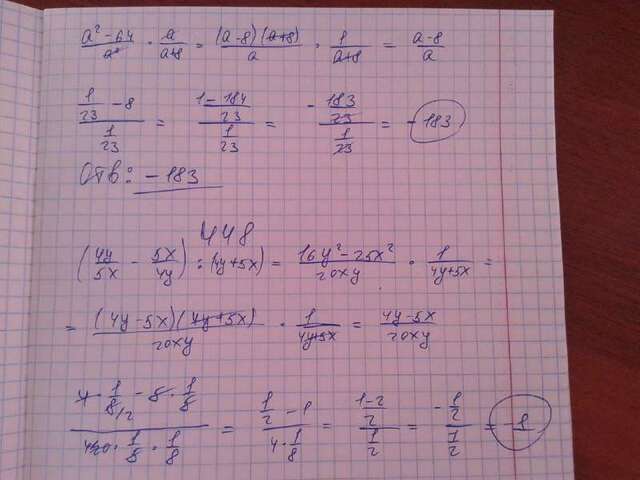 a² - 64 / a² · a / a+8 = (a-8)(a+8) / a · 1 / a+8 = a-8 / a
1/23 - 8 / 1/23 = 1-184 / 23 / 1/23 = - 183/23 / 1/23 = - 183
Отв: - 183
448
(4y/5x - 5x/4y) : (4y+5x) = 16y²-25x² / 20xy · 1 / 4y+5x =
= (4y-5x)(4y+5x) / 20xy · 1 / 4y+5x = 4y-5x / 20xy
1/8 - 8 · 1/8 / · 1/8 · 1/8 = 1/2 - 1 / 4 · 1/8 = 1-2 / 2 / 1/2 = - 1/2 / 1/2 =